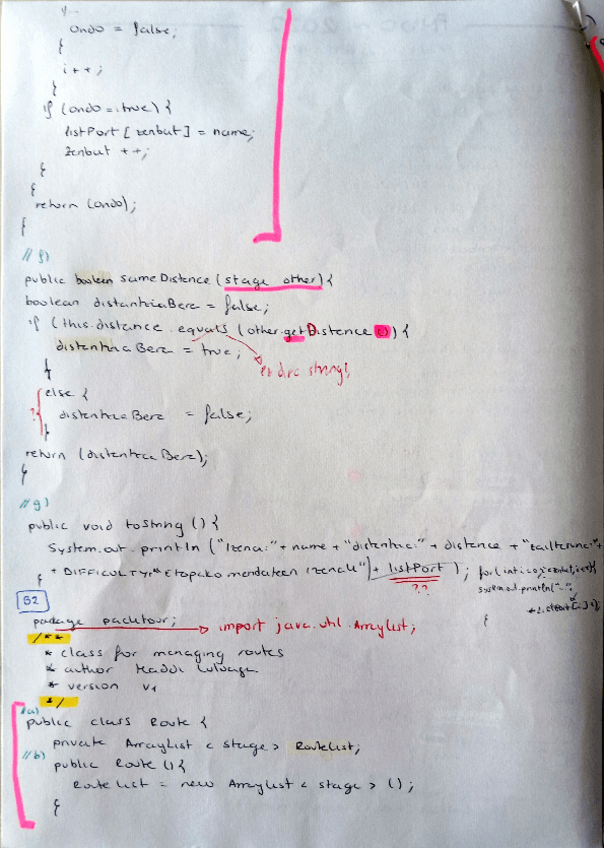 ondo = false;
}
i++;
}
if (ondo = true) {
listPort [zenbat] = name;
zenbat ++;
}
}
return (ondo);
}
//f)
public boolean sameDistance (stage other) {
boolean distantziaBera = false;
if (this.distance.equals (other.getDistance ()) {
distantziaBera = true;
ez dira string!
}
else {
?
distantziaBera = false;
}
return (distantziaBera);
}
//g)
public void toString () {
System.out.println ("Izena:" + name + "distantzia:" + distance +
+ DIFFICULTY + "Etapako mendateen izenak" + listPort);
??
system.out.println("-"
}
}
B2
package packtour; import java.util.ArrayList;
/**
* class for managing routes
* author
* version v1
*/
//a)
public class Route {
private ArrayList < stage > RouteList;
//b)
public Route () {
RouteList = new ArrayList < stage > ();
}